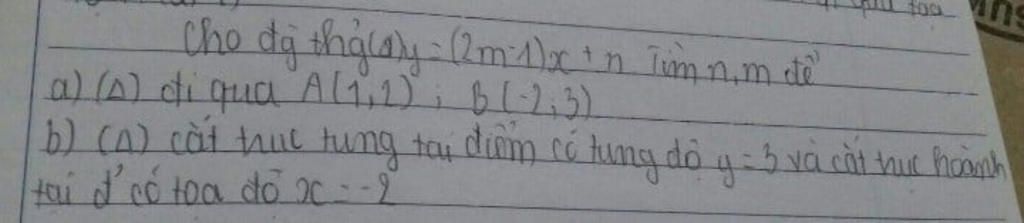 toa
Cho đg thg (Δ) y = (2m-1)x + n Tìm n, m để
a) (Δ) đi qua A(1,2) ; B(-2;3)
b) (Δ) cắt trục tung tại điểm có tung độ y = 3 và cắt trục hoành
tại đ' có toạ độ x = -2